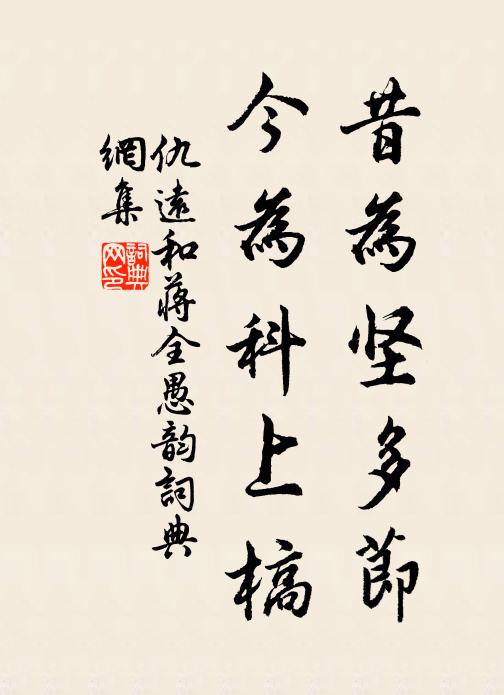 昔為坚多節
今為科上槁
仇遠和蔣全愚韵詞典
網集
詞典网印